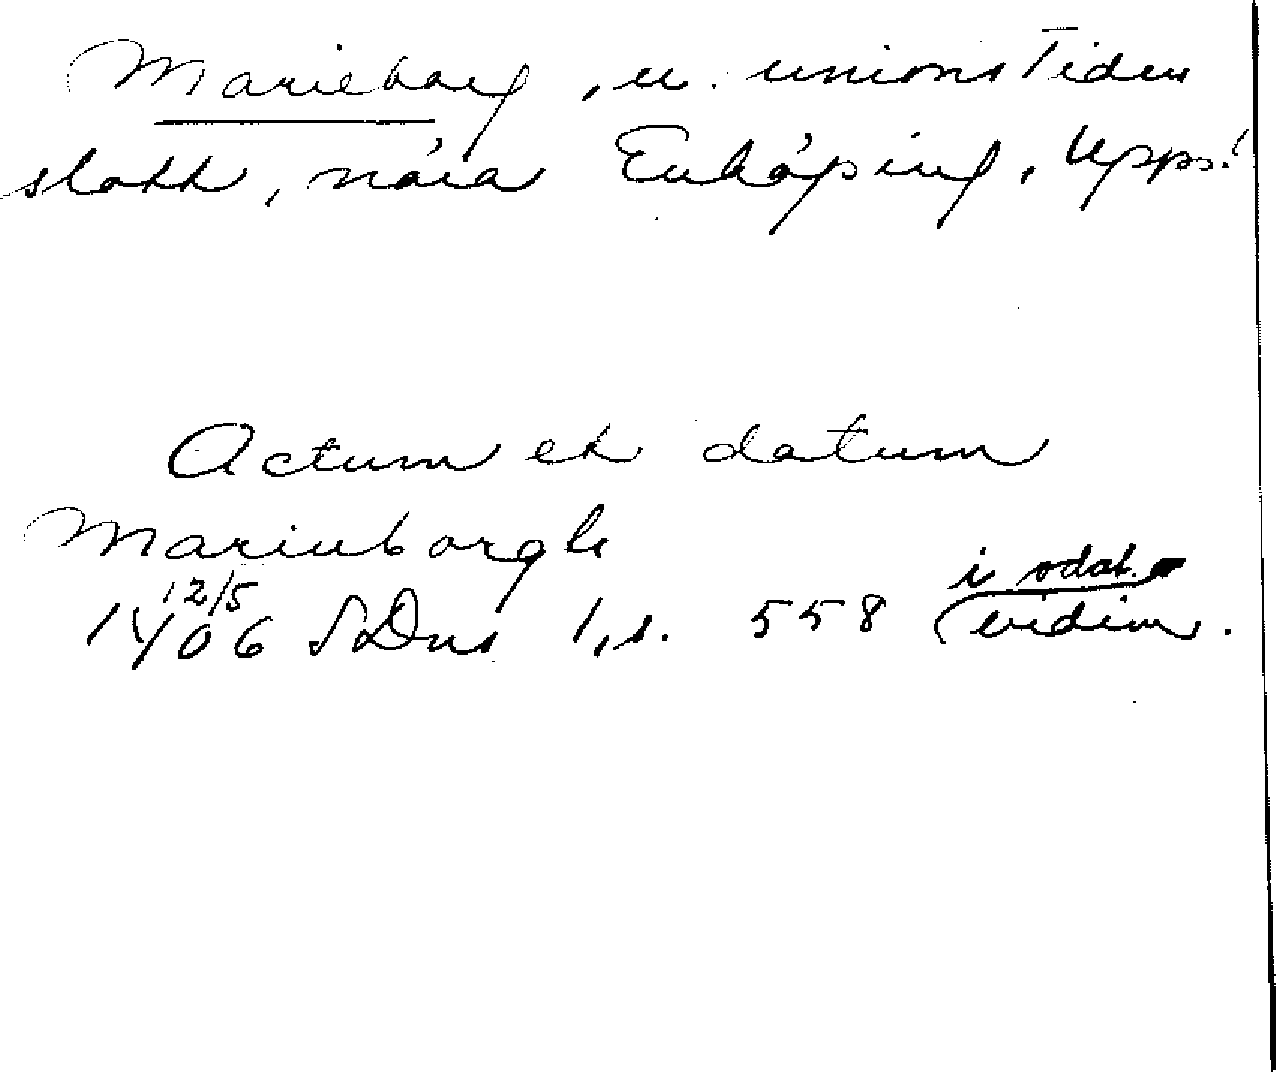 Marieborg, u. unionstiden
slott, nära Enköping, Uppl.
Actum et datum
Marieuborgh
12/5
1406 SDns 1, s. 558 (vidim.
i odat.